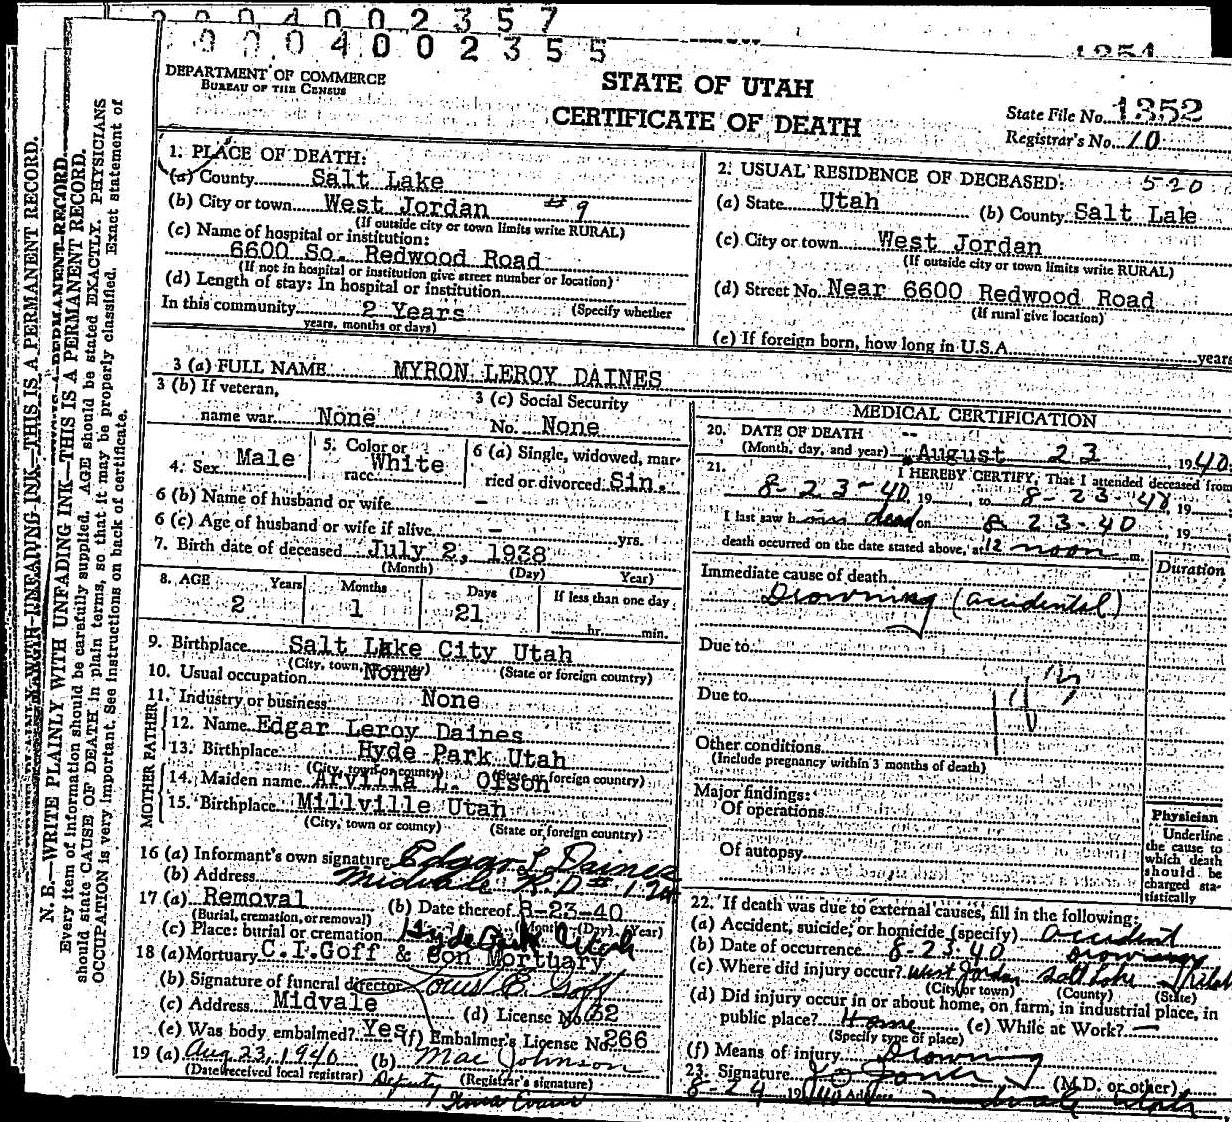 2 0 0 4 0 0 2 3 5 7
0 0 0 4 0 0 2 3 5 5
1254
DEPARTMENT OF COMMERCE
BUREAU OF THE CENSUS
STATE OF UTAH
CERTIFICATE OF DEATH
State File No. 1252
Registrar's No. 10
N. B.—WRITE PLAINLY WITH UNFADING INK—THIS IS A PERMANENT RECORD.
Every item of information should be carefully supplied. AGE should be stated EXACTLY. PHYSICIANS
should state CAUSE OF DEATH in plain terms, so that it may be properly classified. Exact statement of
OCCUPATION is very important. See instructions on back of certificate.
1. PLACE OF DEATH:
(a) County Salt Lake
(b) City or town West Jordan #9
(If outside city or town limits write RURAL)
(c) Name of hospital or institution:
6600 So. Redwood Road
(If not in hospital or institution give street number or location)
(d) Length of stay: In hospital or institution
In this community 2 Years (Specify whether
years, months or days)
2. USUAL RESIDENCE OF DECEASED: 520
(a) State Utah (b) County Salt Lake
(c) City or town West Jordan
(If outside city or town limits write RURAL)
(d) Street No. Near 6600 Redwood Road
(If rural give location)
(e) If foreign born, how long in U.S.A. years
3 (a) FULL NAME MYRON LEROY DAINES
3 (b) If veteran,
name war None
3 (c) Social Security
No. None
4. Sex Male
5. Color or
race White
6 (a) Single, widowed, mar-
ried or divorced Sin.
6 (b) Name of husband or wife -
6 (c) Age of husband or wife if alive - yrs.
7. Birth date of deceased July 2, 1938
(Month) (Day) Year)
8. AGE Years Months Days If less than one day
2 1 21 hr. min.
9. Birthplace Salt Lake City Utah
(City, town, or county) (State or foreign country)
10. Usual occupation None
11. Industry or business None
FATHER
12. Name Edgar Leroy Daines
13. Birthplace Hyde Park Utah
(City, town or county) (State or foreign country)
MOTHER
14. Maiden name Arvilla L. Olson
15. Birthplace Millville Utah
(City, town or county) (State or foreign country)
16 (a) Informant's own signature Edgar L Daines
(b) Address Midvale R.D #1
17 (a) Removal (b) Date thereof 8-23-40
(Burial, cremation, or removal) (Month) (Day) (Year)
(c) Place: burial or cremation Hyde Park Utah
18 (a) Mortuary C.I.Goff & Son Mortuary
(b) Signature of funeral director Louis E. Goff
(c) Address Midvale (d) License No. 62
(e) Was body embalmed? Yes (f) Embalmer's License No. 266
19 (a) Aug 23, 1940 (b) Mae Johnson
(Date received local registrar) Deputy (Registrar's signature)
MEDICAL CERTIFICATION
20. DATE OF DEATH --
(Month, day, and year) August 23, 1940
21. I HEREBY CERTIFY, That I attended deceased from
8-23-40, 19 , to 8-23-40, 19
I last saw h dead on 8-23-40, 19
death occurred on the date stated above, at 12 noon m.
Immediate cause of death Duration
Drowning (accidental)
Due to
Due to
Other conditions
(Include pregnancy within 3 months of death)
Major findings:
Of operations
Of autopsy
Physician
Underline
the cause to
which death
should be
charged sta-
tistically
22. If death was due to external causes, fill in the following:
(a) Accident, suicide, or homicide (specify) accident
(b) Date of occurrence 8-23-40 drowning
(c) Where did injury occur? West Jordan Salt Lake Utah
(City or town) (County) (State)
(d) Did injury occur in or about home, on farm, in industrial place, in
public place? Home (e) While at Work? —
(Specify type of place)
(f) Means of injury Drowning
23. Signature J O Jones (M.D. or other)
8-24 1940 Address Midvale Utah